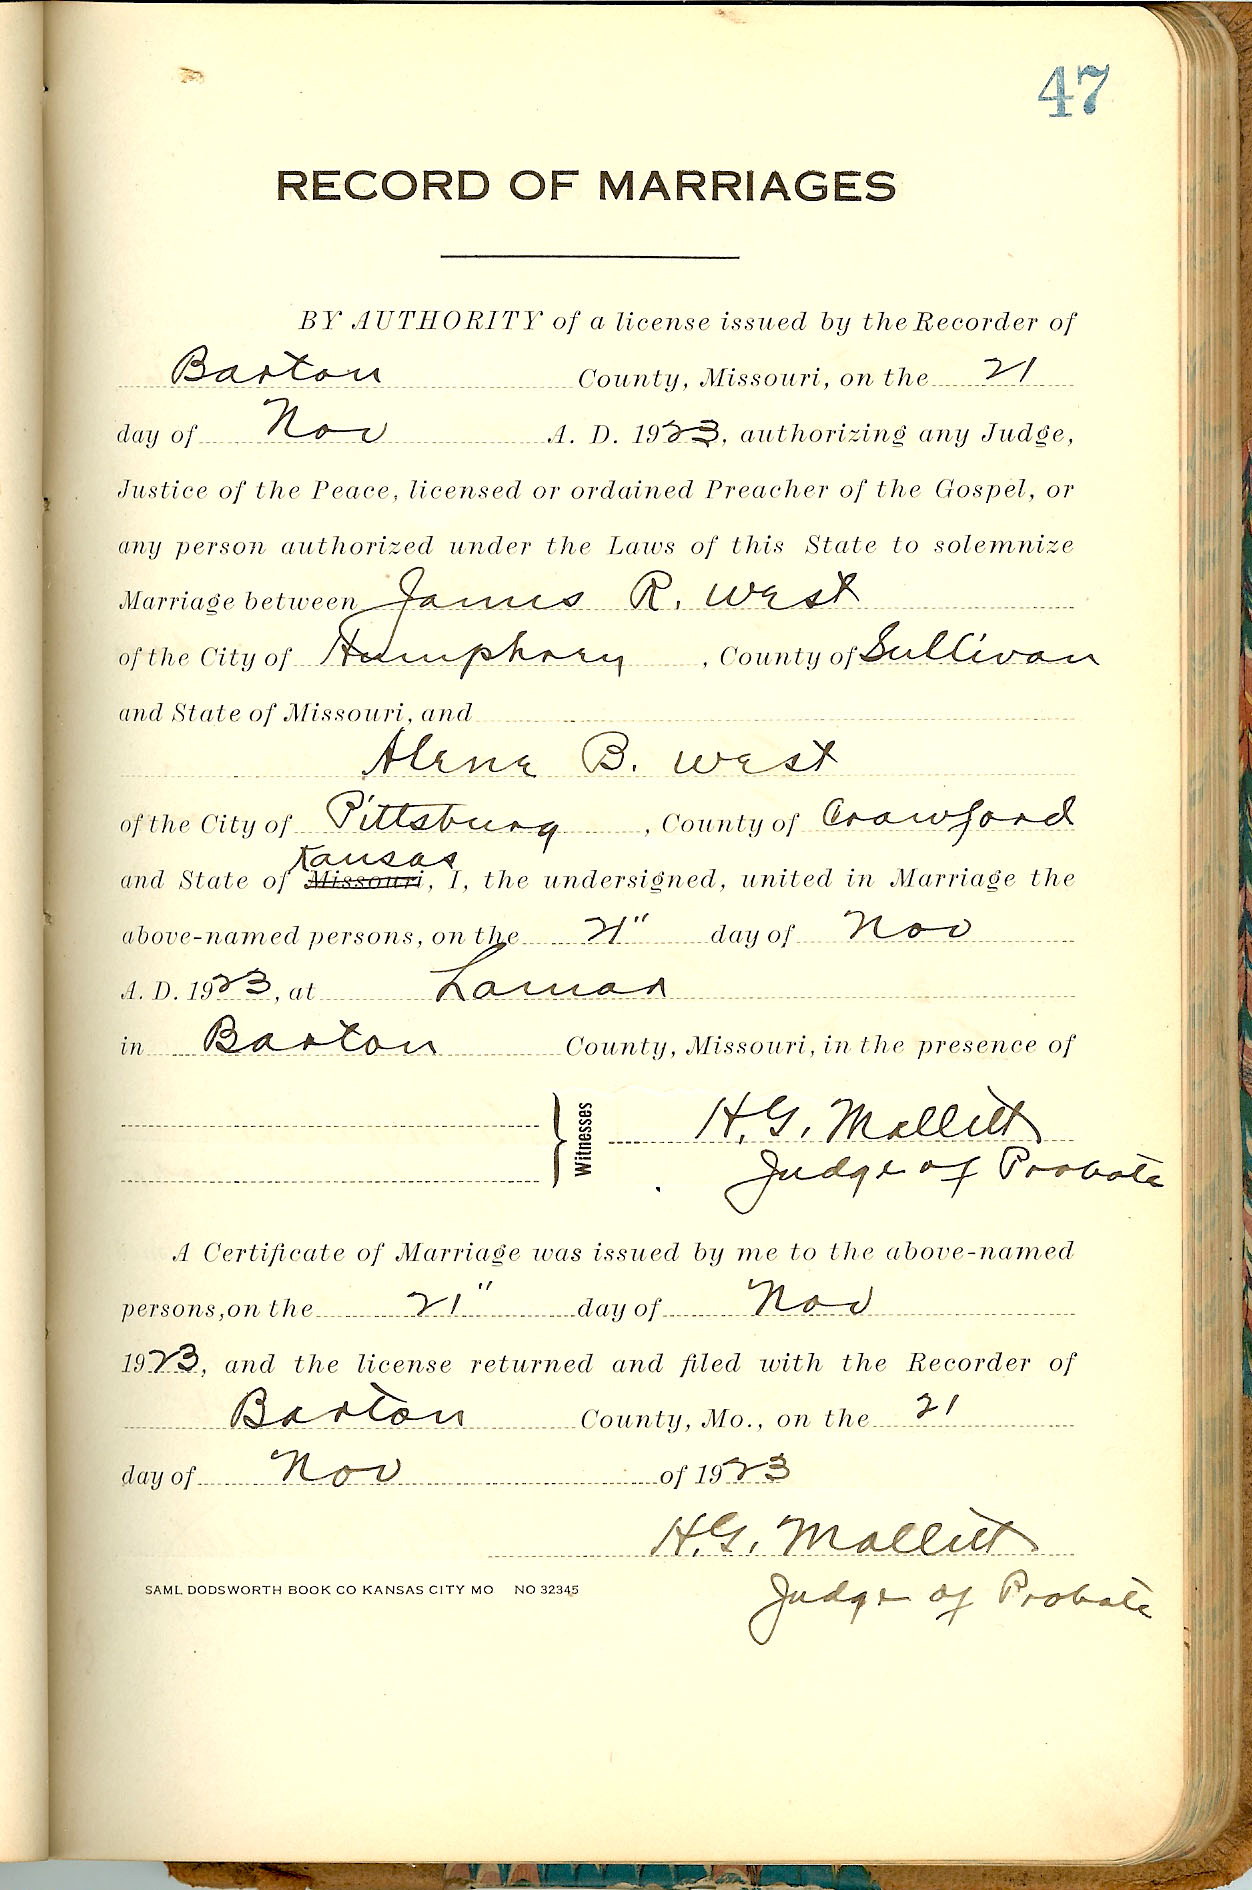 47
RECORD OF MARRIAGES
BY AUTHORITY of a license issued by the Recorder of
Barton County, Missouri, on the 21
day of Nov A. D. 1923, authorizing any Judge,
Justice of the Peace, licensed or ordained Preacher of the Gospel, or
any person authorized under the Laws of this State to solemnize
Marriage between James R. West
of the City of Humphrey, County of Sullivan
and State of Missouri, and
Alene B. West
of the City of Pittsburg, County of Crawford
Kansas
and State of Missouri, I, the undersigned, united in Marriage the
above-named persons, on the 21" day of Nov
A. D. 1923, at Lamar
in Barton County, Missouri, in the presence of
Witnesses H.G. Mallitt
Judge of Probate
A Certificate of Marriage was issued by me to the above-named
persons, on the 21" day of Nov
1923, and the license returned and filed with the Recorder of
Barton County, Mo., on the 21
day of Nov of 1923
H.G. Mallitt
Judge of Probate
SAML DODSWORTH BOOK CO KANSAS CITY MO NO 32345